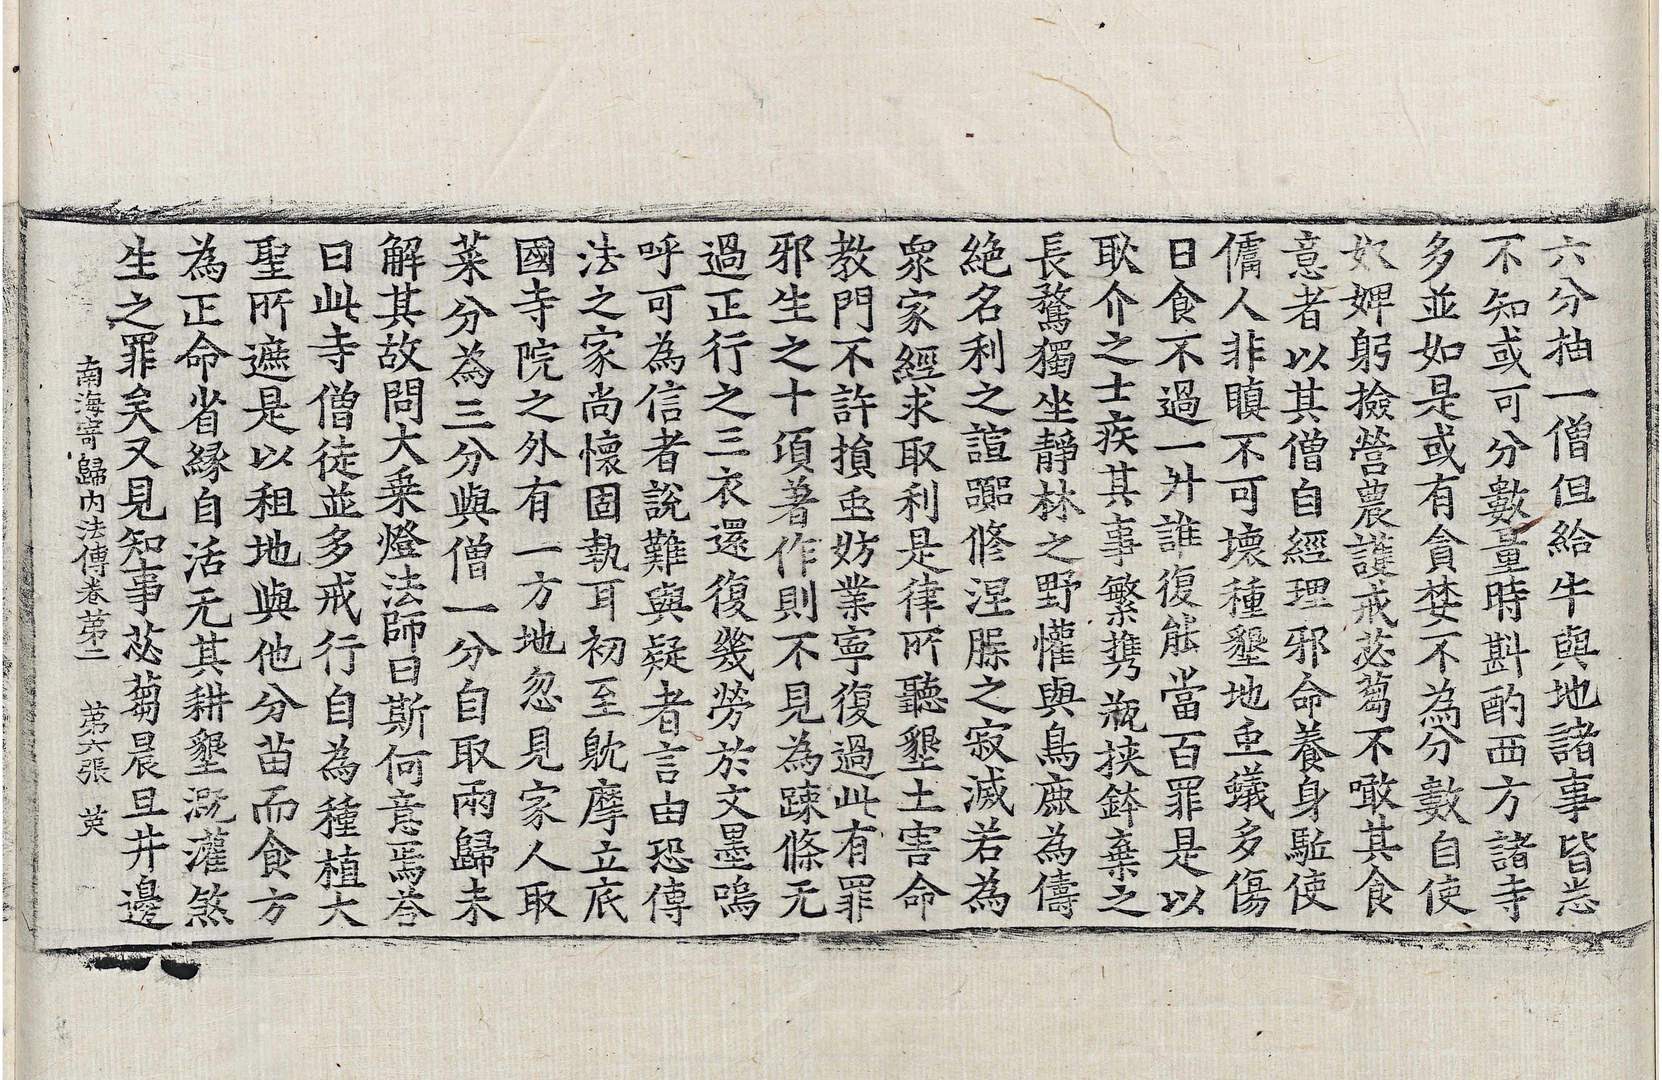 六分抽一僧但給牛與地諸事皆悉
不知或可分數量時斟酌西方諸寺
多並如是或有貪婪不為分數自使
奴婢躬撿營農護戒苾蒭不噉其食
意者以其僧自經理邪命養身駈使
傭人非瞋不可壞種墾地䖝蟻多傷
日食不過一升誰復能當百罪是以
耿介之士疾其事繁攜瓶挾鉢棄之
長騖獨坐靜林之野懽與鳥鹿為儔
絶名利之諠囂修涅槃之寂滅若為
衆家經求取利是律所聽墾土害命
教門不許損䖝妨業寧復過此有罪
邪生之十項著作則不見為踈條无
過正行之三衣還復幾勞於文墨嗚
呼可為信者說難與疑者言由恐傳
法之家尚懷固執耳初至躭摩立底
國寺院之外有一方地忽見家人取
菜分為三分與僧一分自取兩歸未
解其故問大乗燈法師曰斯何意焉荅
曰此寺僧徒並多戒行自為種植大
聖所遮是以租地與他分苗而食方
為正命省緣自活无其耕墾溉灌煞
生之罪矣又見知事苾蒭晨旦井邊
南海寄歸内法傳卷第二　第六張　英